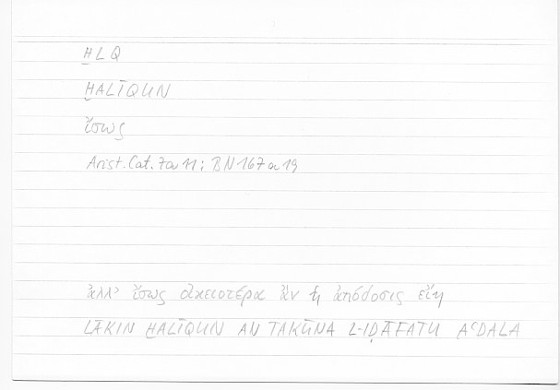 ḪLQ
ḪALĪQUN
ἴσως
Arist. Cat. 7a11; BN 167a19
ἀλλ' ἴσως οἰκειοτέρα ἂν ἡ ἀπόδοσις εἴη
LĀKIN ḪALĪQUN AN TAKŪNA L-IḌĀFATU AʿDALA